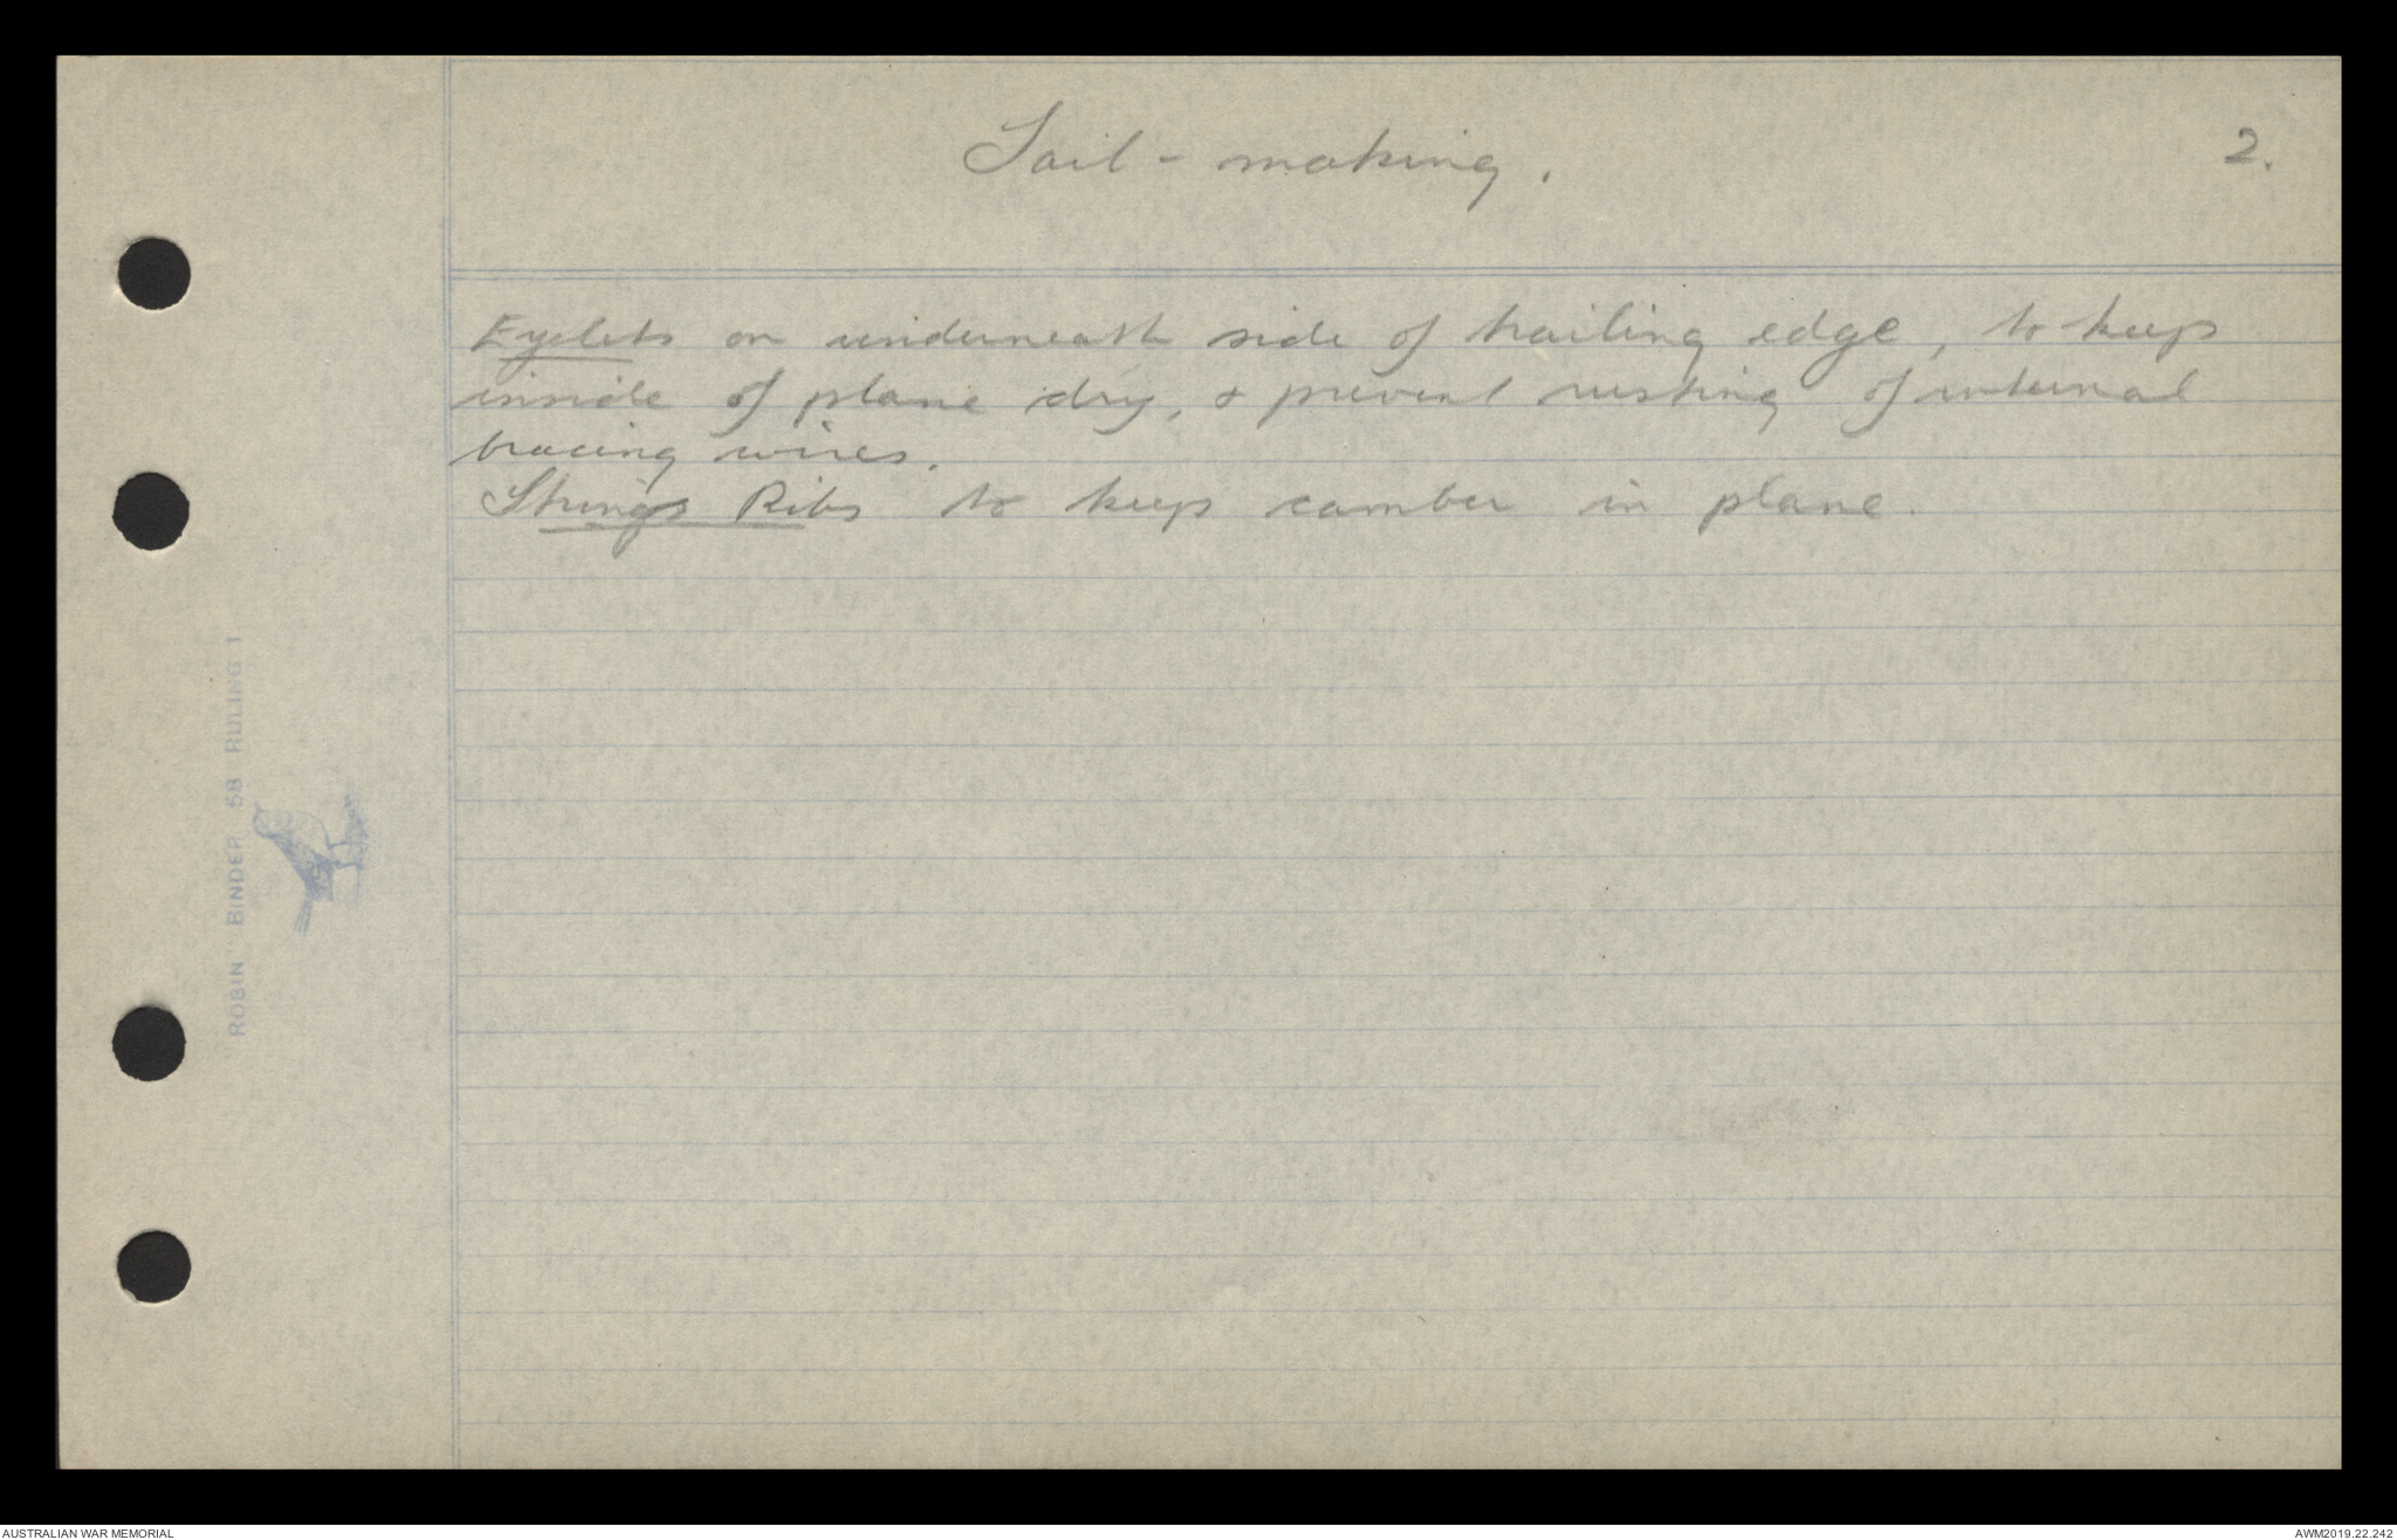 Sail - making.
2.
Eyelets on underneath side of trailing edge, to keep
inside of plane dry, & prevent rusting of internal
bracing wires.
Strings Ribs to keep camber in plane.
"ROBIN" BINDER 58 RULING 1
AUSTRALIAN WAR MEMORIAL
AWM2019.22.242